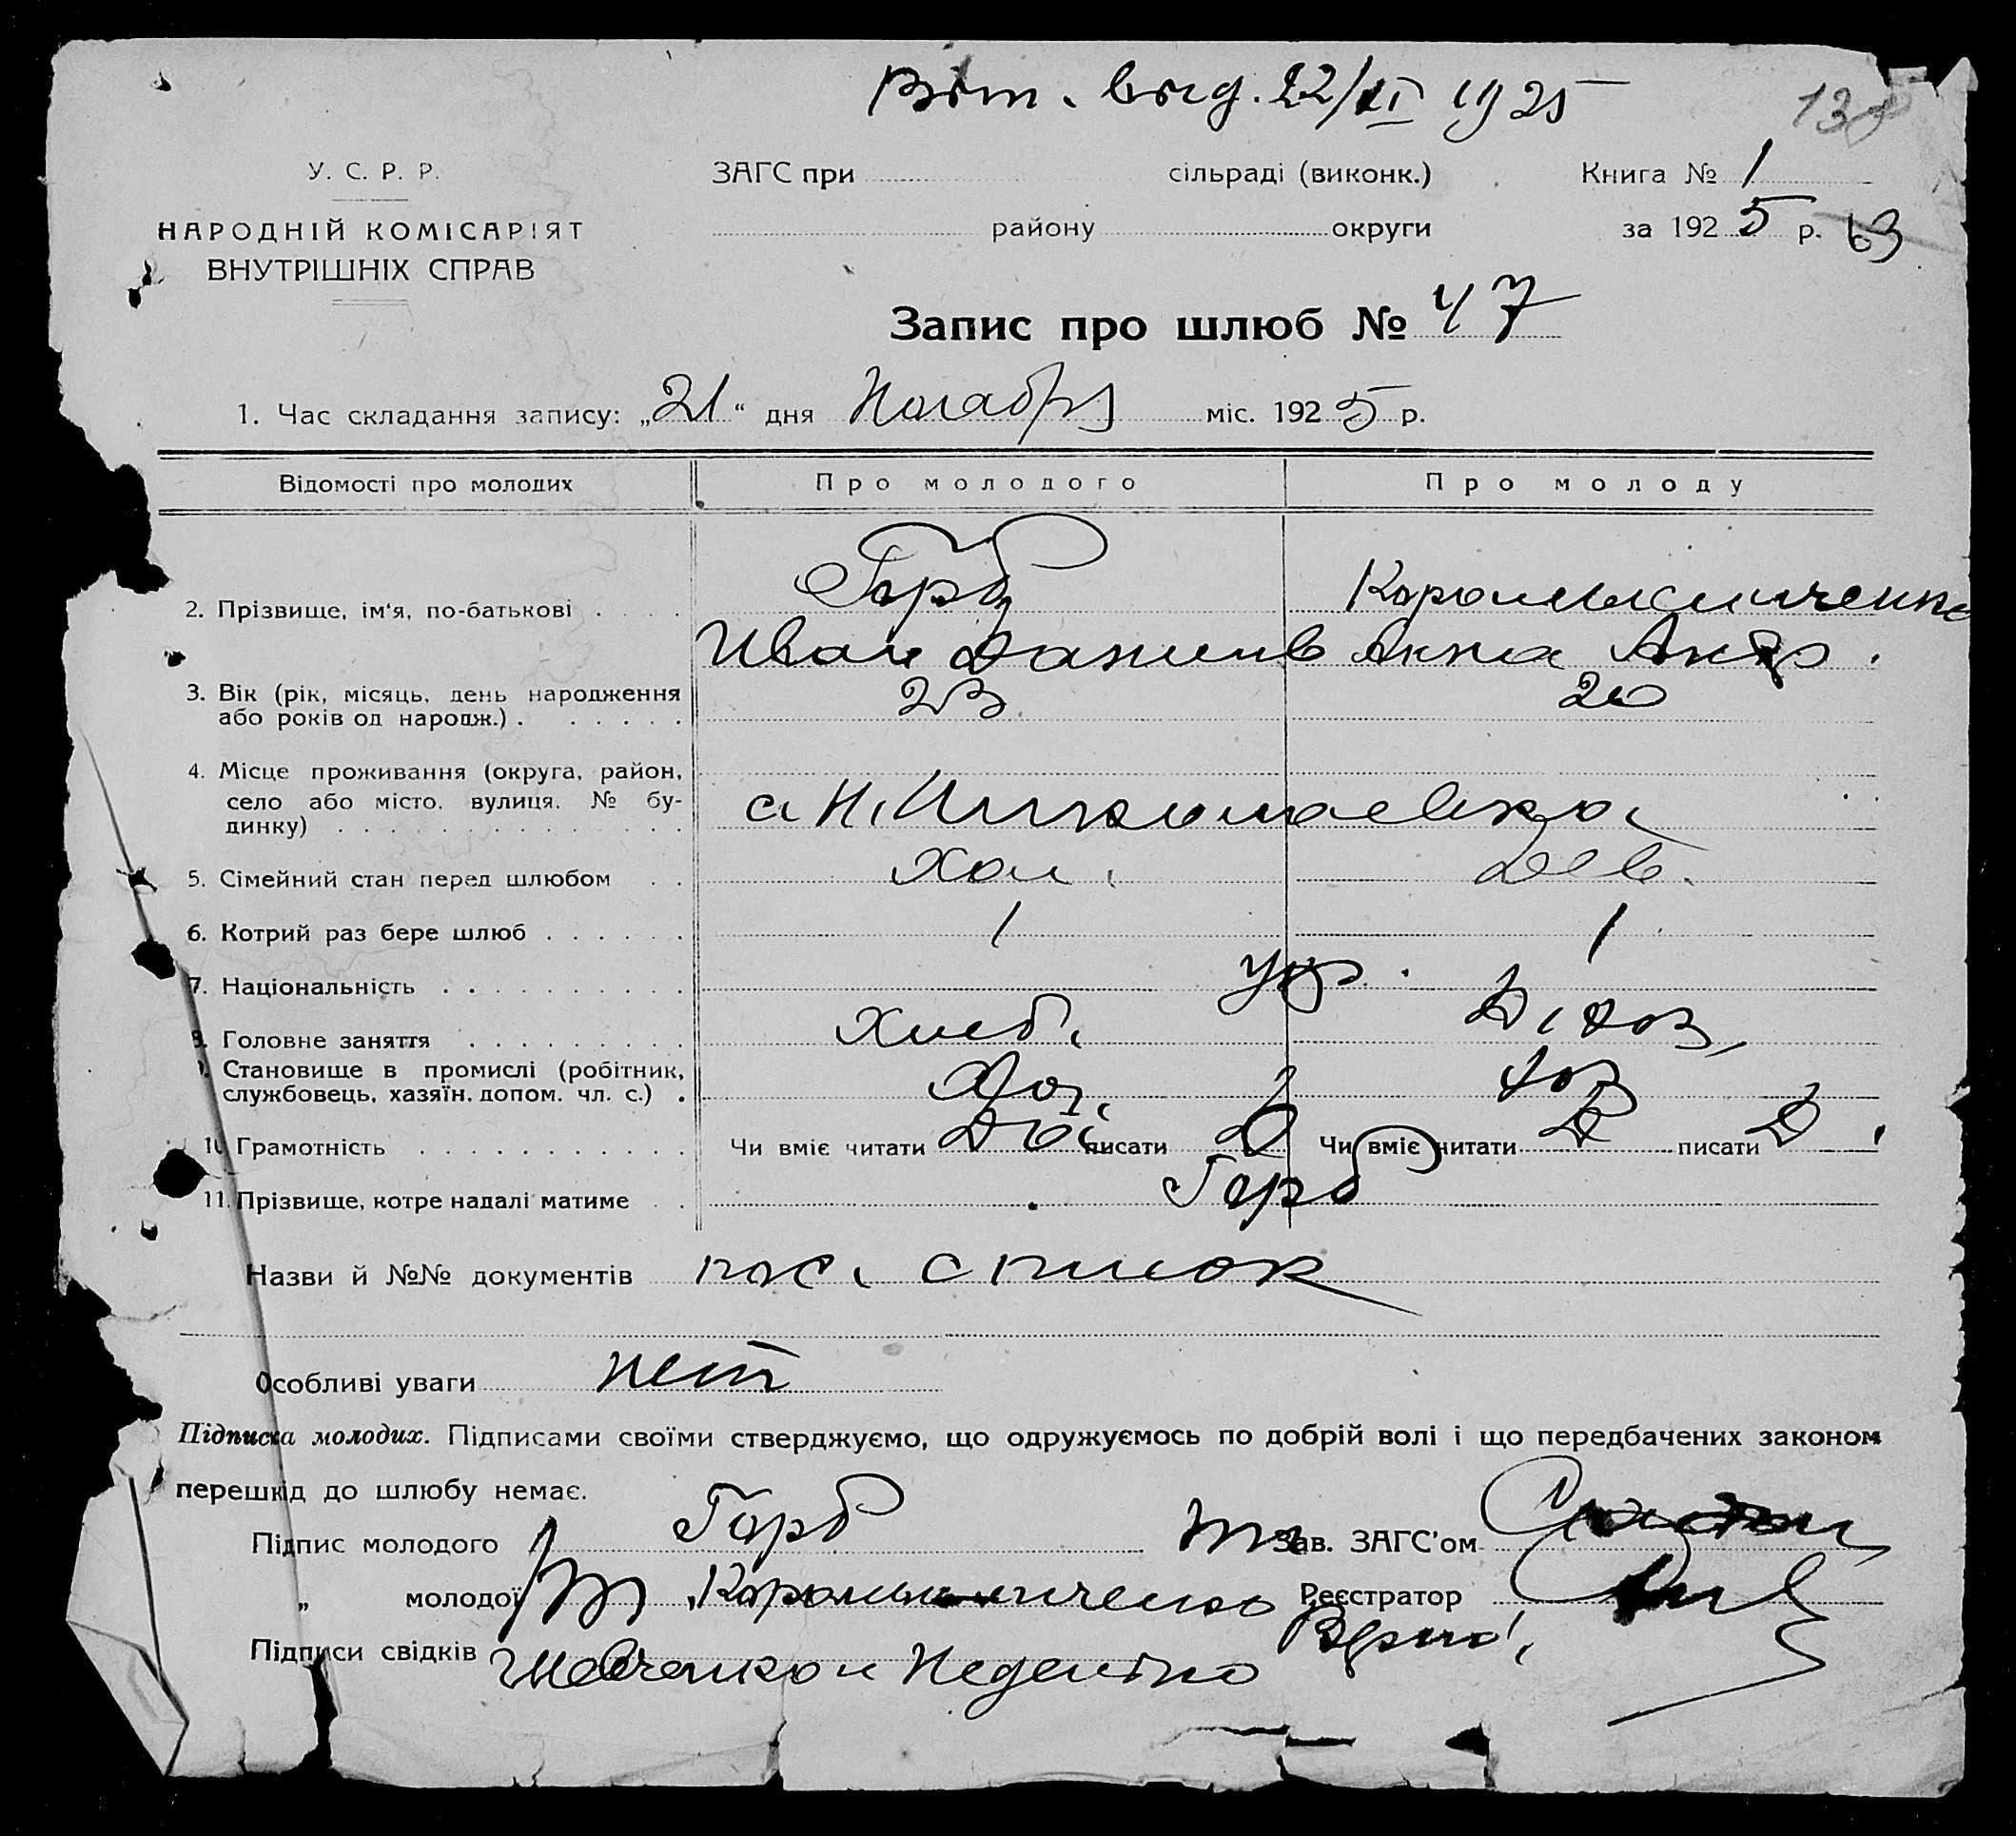 22/XI 1925
138
У. С. Р. Р.
ЗАГС при сільраді (виконк.) Книга № 1
НАРОДНІЙ КОМІСАРІЯТ
ВНУТРІШНІХ СПРАВ
району округи за 1925 р. 63
Запис про шлюб № 47
1. Час складання запису: „21“ дня Ноября міс. 1925 р.
Відомості про молодих Про молодого Про молоду
2. Прізвище, ім'я, по-батькові Горб
Иван Данилов Анна
3. Вік (рік, місяць, день народження
або років од народж.) 23 20
4. Місце проживання (округа, район,
село або місто, вулиця, № бу-
динку) с. Н. Николаевка
5. Сімейний стан перед шлюбом Хол. Дев.
6. Котрий раз бере шлюб 1 1
7. Національність укр.
8. Головне заняття Хлеб.
9. Становище в промислі (робітник,
службовець, хазяїн, допом. чл. с.)
10. Грамотність Чи вміє читати писати Чи вміє читати писати
11. Прізвище, котре надалі матиме Горб
Назви й №№ документів пос. список
Особливі уваги нет
Підписка молодих. Підписами своїми стверджуємо, що одружуємось по добрій волі і що передбачених законом
перешкід до шлюбу немає.
Підпис молодого Горб Зав. ЗАГС'ом
„ молодої Реєстратор
Підписи свідків Шевченко и